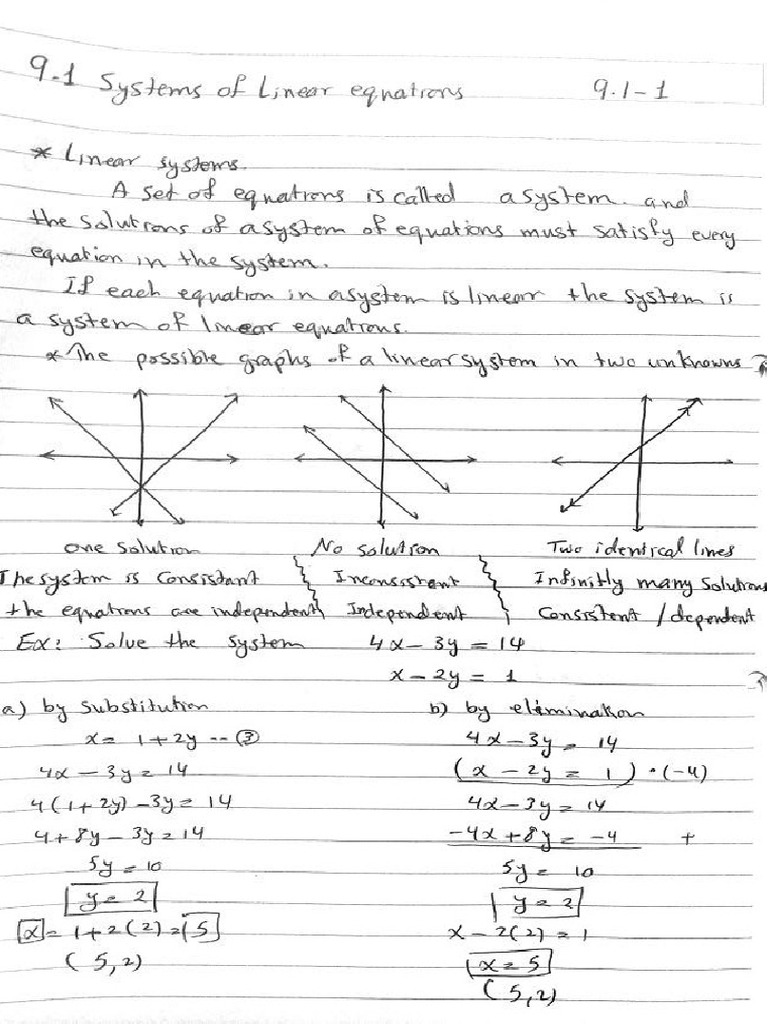 9.1 Systems of Linear equations 9.1-1
* Linear systems.
A set of equations is called a system. and
the solutions of a system of equations must satisfy every
equation in the system.
If each equation in a system is linear the system is
a system of linear equations.
* The possible graphs of a linear system in two unknowns
one solution No solution Two identical lines
The system is Consistant Inconsistent Infinitly many Solutions
the equations are independent Independent Consistent / dependent
Ex: Solve the system 4x - 3y = 14
x - 2y = 1
a) by substitution b) by elimination
x = 1 + 2y -- ③ 4x - 3y = 14
4x - 3y = 14 (x - 2y = 1) • (-4)
4(1 + 2y) - 3y = 14 4x - 3y = 14
4 + 8y - 3y = 14 -4x + 8y = -4 +
5y = 10 5y = 10
y = 2 y = 2
x = 1 + 2(2) = 5 x - 2(2) = 1
(5,2) x = 5
(5,2)